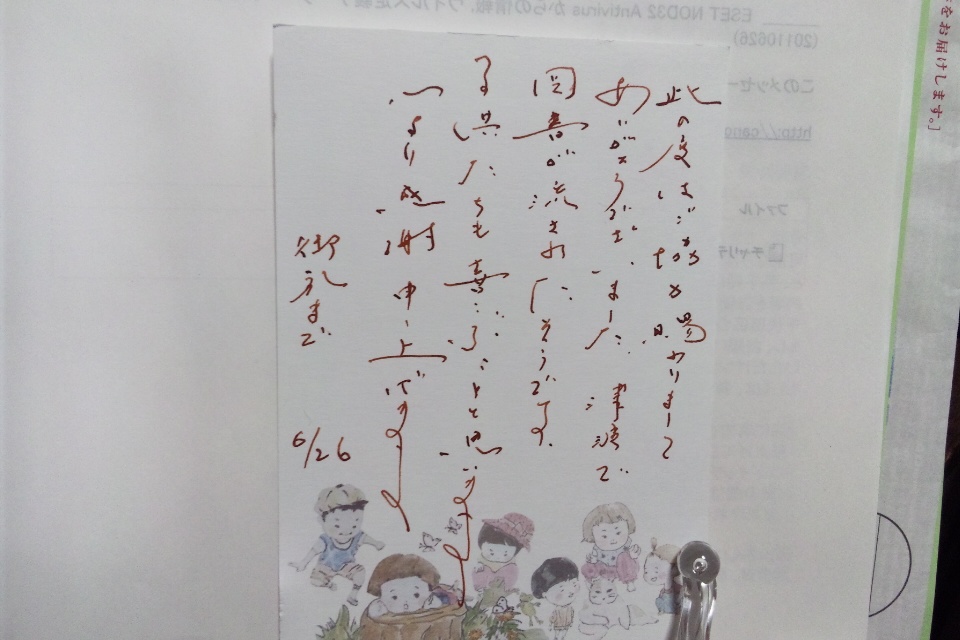 此の度はご協力賜わりまして
ありがとうございました 津波で
図書が流されたそうです。
子供たちも喜ぶことと思います
心より感謝申し上げます
御礼まで
6/26
をお届けします。]
ESET NOD32 Antivirus からの情報, ウイルス定義
(20110626)
このメッセー
http://
ファイル
チャリテ